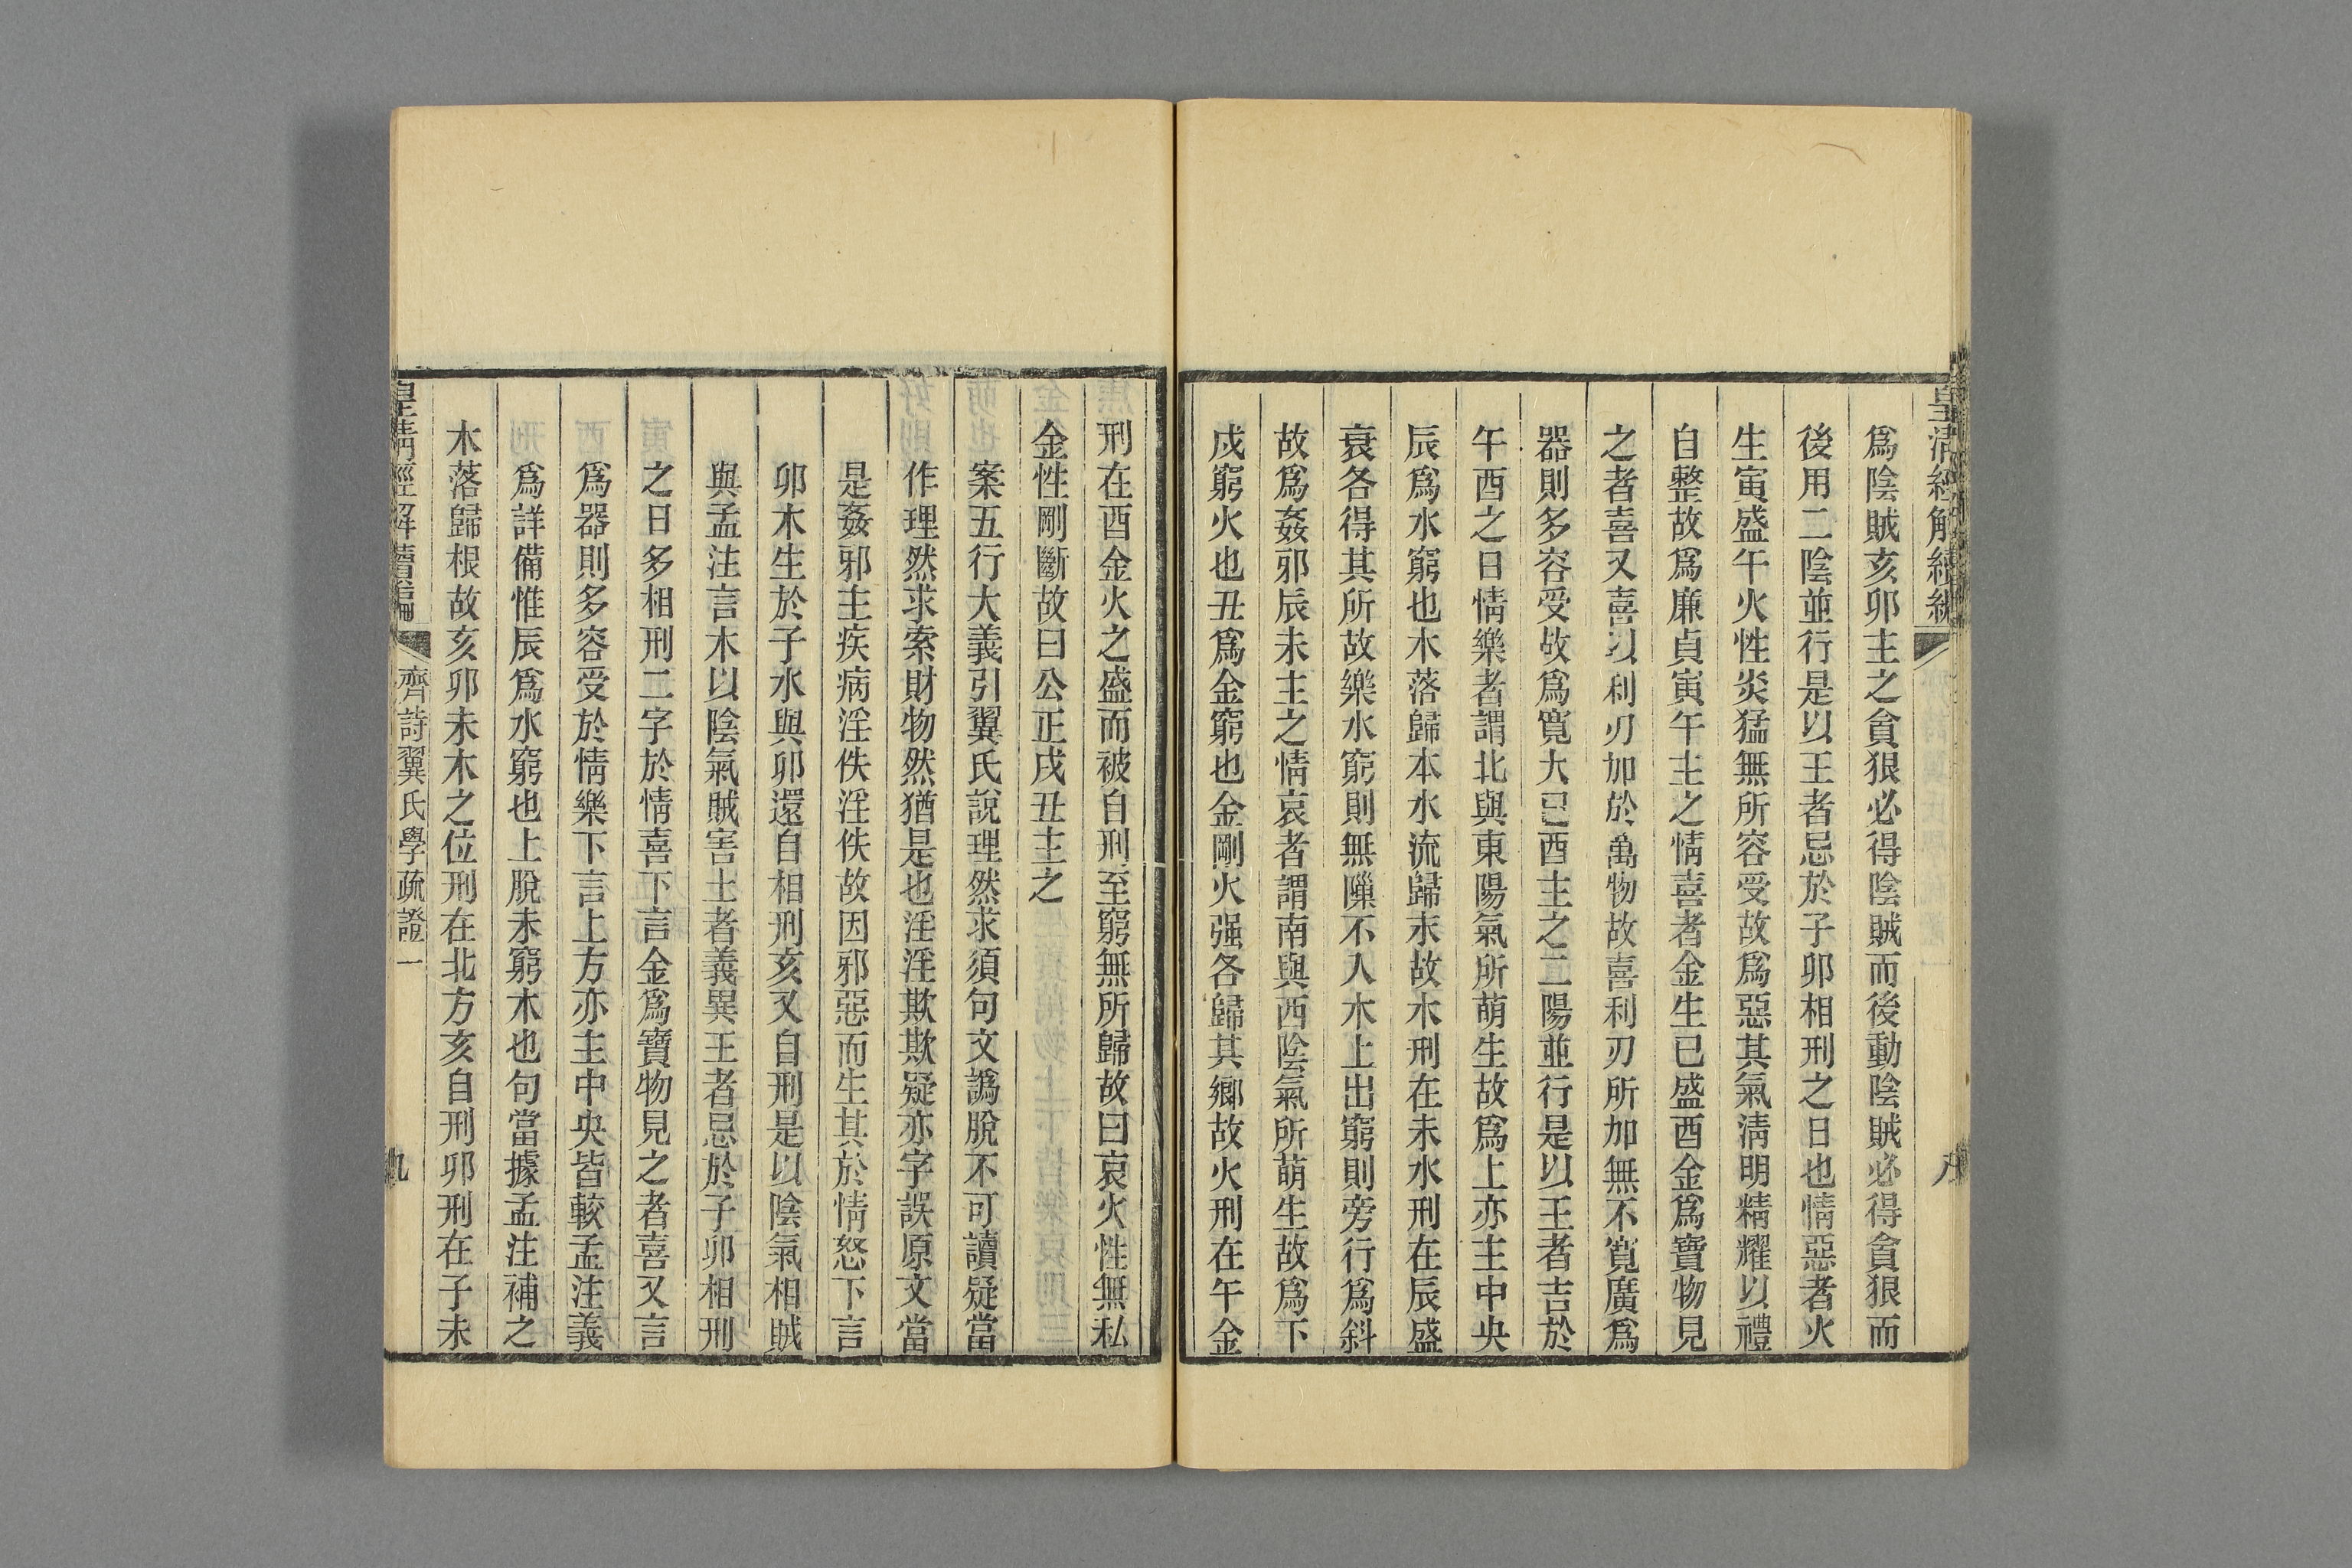 皇清經解續編
爲陰賊亥卯主之貪狠必得陰賊而後動陰賊必得貪狠而
後用二陰並行是以王者忌於子卯相刑之日也情惡者火
生寅盛午火性炎猛無所容受故爲惡其氣淸明精耀以禮
自整故爲廉貞寅午主之情喜者金生巳盛酉金爲寶物見
之者喜又喜以利刃加於萬物故喜利刃所加無不寬廣爲
器則多容受故爲寬大巳酉主之二陽並行是以王者吉於
午酉之日情樂者謂北與東陽氣所萌生故爲上亦主中央
辰爲水窮也木落歸本水流歸末故木刑在未水刑在辰盛
衰各得其所故樂水窮則無隟不入木上出窮則旁行爲斜
故爲姦邪辰未主之情哀者謂南與西陰氣所萌生故爲下
戍窮火也丑爲金窮也金剛火强各歸其鄕故火刑在午金
刑在酉金火之盛而被自刑至窮無所歸故曰哀火性無私
金性剛斷故曰公正戌丑主之
案五行大義引翼氏說理然求須句文譌脫不可讀疑當
作理然求索財物然猶是也淫淫欺欺疑亦字誤原文當
是姦邪主疾病淫佚淫佚故因邪惡而生其於情怒下言
卯木生於子水與卯還自相刑亥又自刑是以陰氣相賊
與孟注言木以陰氣賊害土者義異王者忌於子卯相刑
之日多相刑二字於情喜下言金爲寶物見之者喜又言
爲器則多容受於情樂下言上方亦主中央皆較孟注義
爲詳備惟辰爲水窮也上脫未窮木也句當據孟注補之
木落歸根故亥卯未木之位刑在北方亥自刑卯刑在子未
皇淸經解續編
齊詩翼氏學疏證一
九